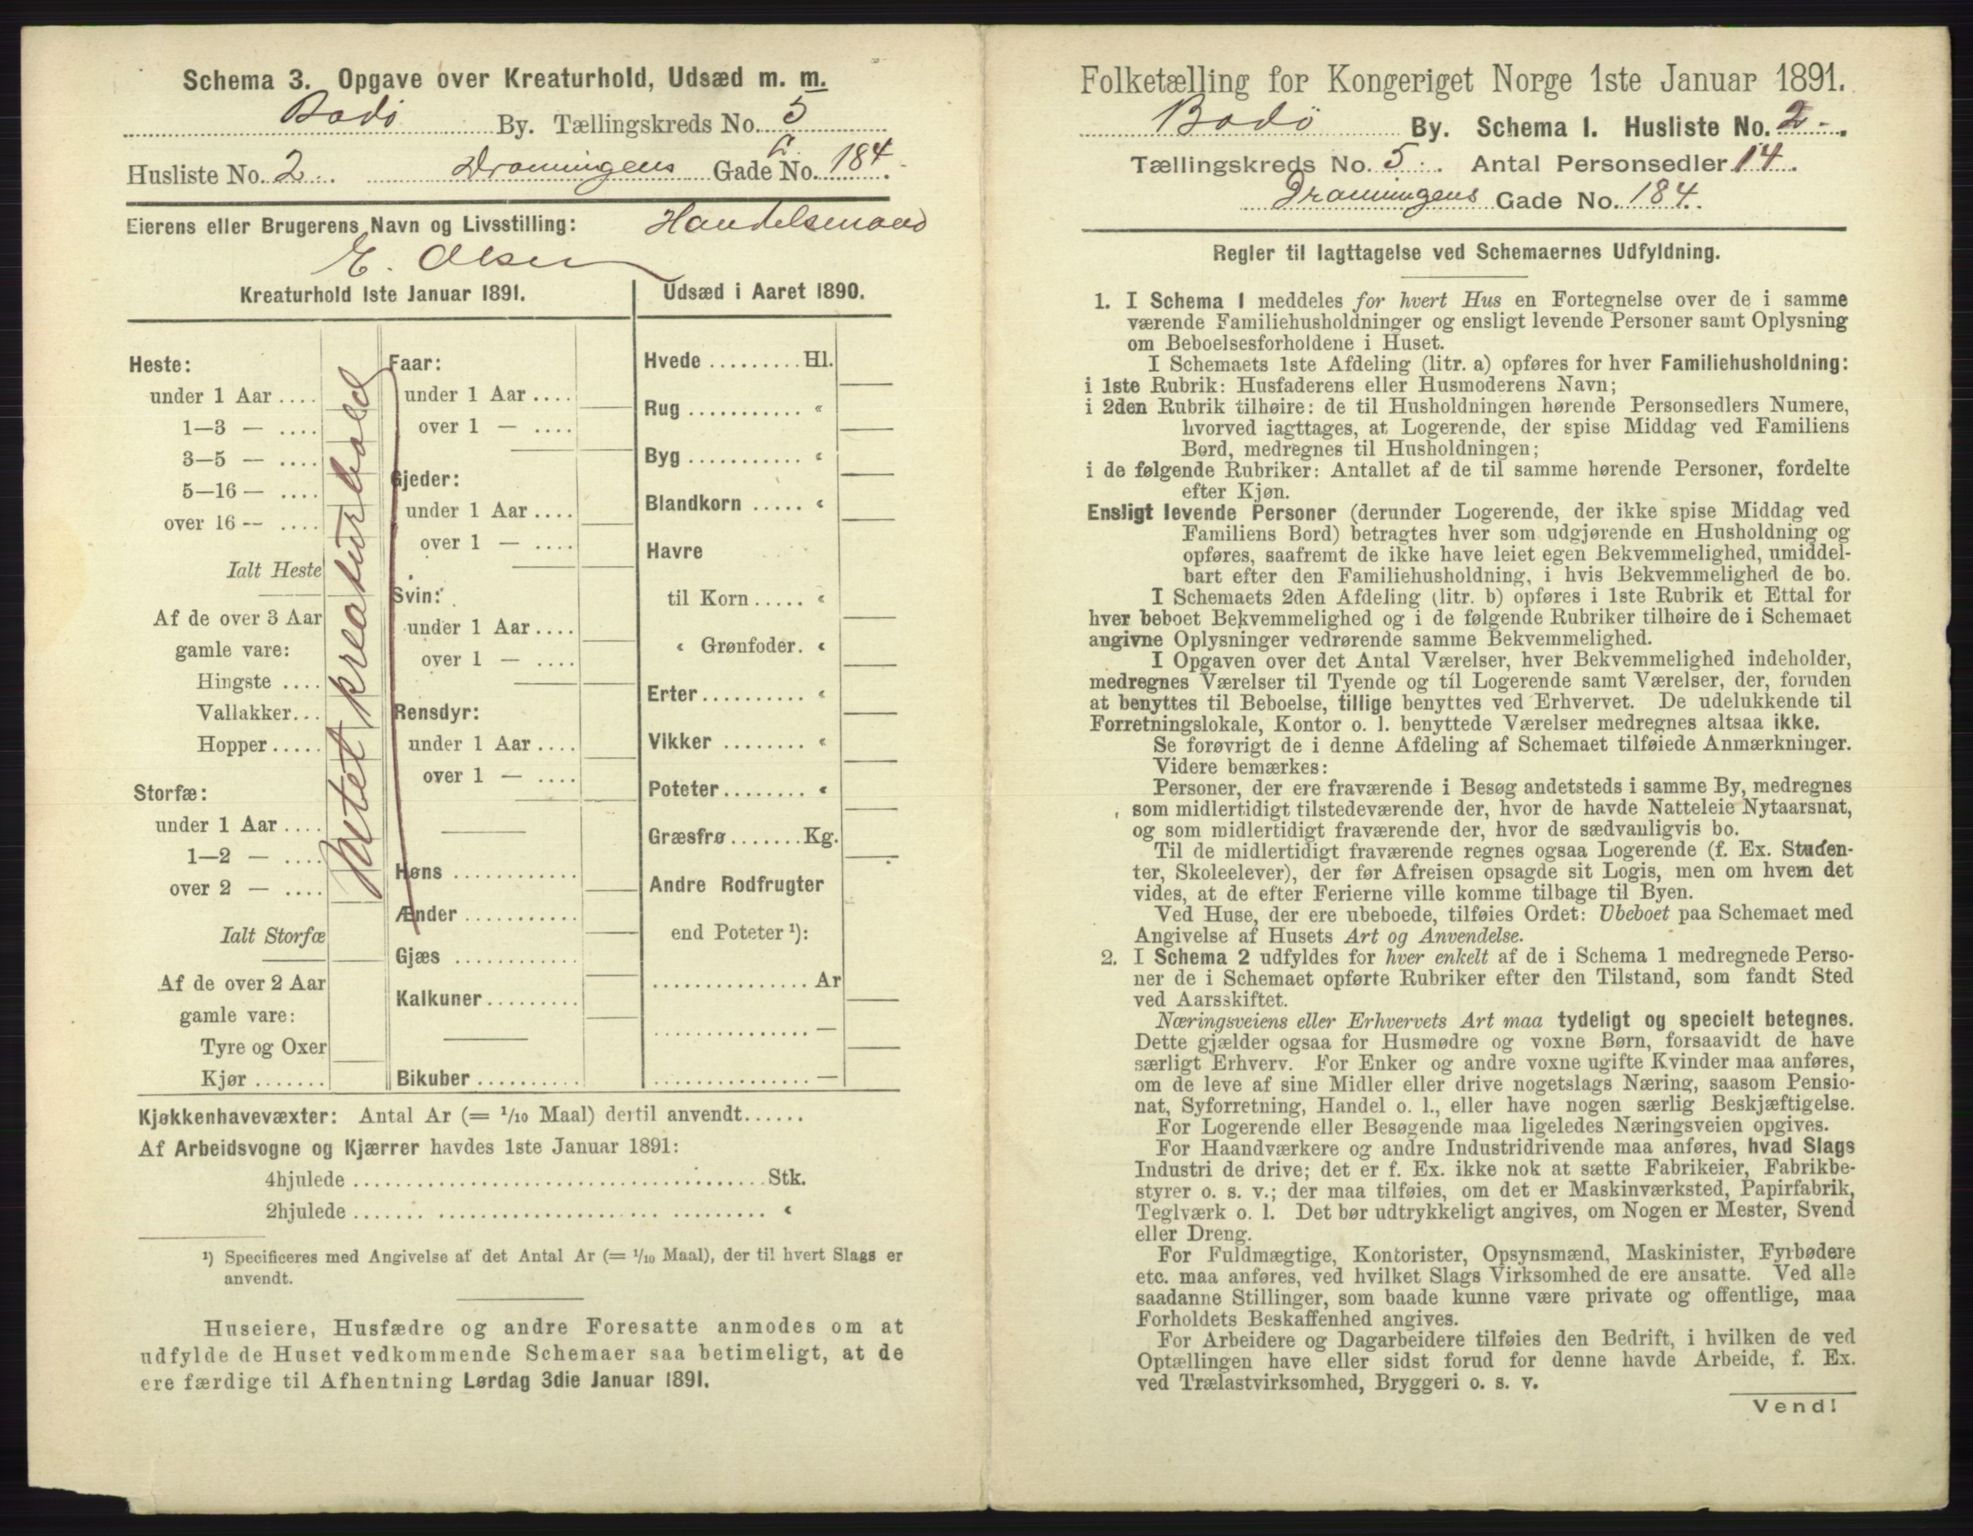 Schema 3. Opgave over Kreaturhold, Udsæd m. m.
Bodø By. Tællingskreds No. 5
Husliste No. 2 Dronningens Gade No. 184.
Eierens eller Brugerens Navn og Livsstilling: Handelsmand
E. Olsen
Kreaturhold 1ste Januar 1891.
Heste:
under 1 Aar....
1—3 — ....
3—5 — ....
5—16 — ....
over 16 -- ....
Ialt Heste
Af de over 3 Aar
gamle vare:
Hingste ....
Vallakker...
Hopper.....
Storfæ:
under 1 Aar....
1—2 — ....
over 2 — ....
Ialt Storfæ
Af de over 2 Aar
gamle vare:
Tyre og Oxer
Kjør .......
Intet kreaturhold
Faar:
under 1 Aar....
over 1 — ....
Gjeder:
under 1 Aar....
over 1 — ....
Svin:
under 1 Aar....
over 1 — ....
Rensdyr:
under 1 Aar....
over 1 — ....
Høns ............
Ænder ...........
Gjæs ............
Kalkuner.........
Bikuber..........
Udsæd i Aaret 1890.
Hvede .........Hl.
Rug ........... «
Byg ........... «
Blandkorn ..... «
Havre
til Korn..... «
« Grønfoder. «
Erter.......... «
Vikker ........ «
Poteter........ «
Græsfrø.......Kg.
Andre Rodfrugter
end Poteter ¹):
...............Ar
...............—
...............—
Kjøkkenhavevæxter: Antal Ar (= 1/10 Maal) dertil anvendt......
Af Arbeidsvogne og Kjærrer havdes 1ste Januar 1891:
4hjulede ........................................Stk.
2hjulede ........................................ «
¹) Specificeres med Angivelse af det Antal Ar (= 1/10 Maal), der til hvert Slags er
anvendt.
Huseiere, Husfædre og andre Foresatte anmodes om at
udfylde de Huset vedkommende Schemaer saa betimeligt, at de
ere færdige til Afhentning Lørdag 3die Januar 1891.
Folketælling for Kongeriget Norge 1ste Januar 1891.
Bodø By. Schema 1. Husliste No. 2.
Tællingskreds No. 5. Antal Personsedler 14.
Dronningens Gade No. 184.
Regler til Iagttagelse ved Schemaernes Udfyldning.
1. I Schema 1 meddeles for hvert Hus en Fortegnelse over de i samme
værende Familiehusholdninger og ensligt levende Personer samt Oplysning
om Beboelsesforholdene i Huset.
I Schemaets 1ste Afdeling (litr. a) opføres for hver Familiehusholdning:
i 1ste Rubrik: Husfaderens eller Husmoderens Navn;
i 2den Rubrik tilhøire: de til Husholdningen hørende Personsedlers Numere,
hvorved iagttages, at Logerende, der spise Middag ved Familiens
Bord, medregnes til Husholdningen;
i de følgende Rubriker: Antallet af de til samme hørende Personer, fordelte
efter Kjøn.
Ensligt levende Personer (derunder Logerende, der ikke spise Middag ved
Familiens Bord) betragtes hver som udgjørende en Husholdning og
opføres, saafremt de ikke have leiet egen Bekvemmelighed, umiddel-
bart efter den Familiehusholdning, i hvis Bekvemmelighed de bo.
I Schemaets 2den Afdeling (litr. b) opføres i 1ste Rubrik et Ettal for
hver beboet Bekvemmelighed og i de følgende Rubriker tilhøire de i Schemaet
angivne Oplysninger vedrørende samme Bekvemmelighed.
I Opgaven over det Antal Værelser, hver Bekvemmelighed indeholder,
medregnes Værelser til Tyende og til Logerende samt Værelser, der, foruden
at benyttes til Beboelse, tillige benyttes ved Erhvervet. De udelukkende til
Forretningslokale, Kontor o. l. benyttede Værelser medregnes altsaa ikke.
Se forøvrigt de i denne Afdeling af Schemaet tilføiede Anmærkninger.
Videre bemærkes:
Personer, der ere fraværende i Besøg andetsteds i samme By, medregnes
som midlertidigt tilstedeværende der, hvor de havde Natteleie Nytaarsnat,
og som midlertidigt fraværende der, hvor de sædvanligvis bo.
Til de midlertidigt fraværende regnes ogsaa Logerende (f. Ex. Studen-
ter, Skoleelever), der før Afreisen opsagde sit Logis, men om hvem det
vides, at de efter Ferierne ville komme tilbage til Byen.
Ved Huse, der ere ubeboede, tilføies Ordet: Ubeboet paa Schemaet med
Angivelse af Husets Art og Anvendelse.
2. I Schema 2 udfyldes for hver enkelt af de i Schema 1 medregnede Perso-
ner de i Schemaet opførte Rubriker efter den Tilstand, som fandt Sted
ved Aarsskiftet.
Næringsveiens eller Erhvervets Art maa tydeligt og specielt betegnes.
Dette gjælder ogsaa for Husmødre og voxne Børn, forsaavidt de have
særligt Erhverv. For Enker og andre voxne ugifte Kvinder maa anføres,
om de leve af sine Midler eller drive nogetslags Næring, saasom Pensio-
nat, Syforretning, Handel o. l., eller have nogen særlig Beskjæftigelse.
For Logerende eller Besøgende maa ligeledes Næringsveien opgives.
For Haandværkere og andre Industridrivende maa anføres, hvad Slags
Industri de drive; det er f. Ex. ikke nok at sætte Fabrikeier, Fabrikbe-
styrer o. s. v.; der maa tilføies, om det er Maskinværksted, Papirfabrik,
Teglværk o. l. Det bør udtrykkeligt angives, om Nogen er Mester, Svend
eller Dreng.
For Fuldmægtige, Kontorister, Opsynsmænd, Maskinister, Fyrbødere
etc. maa anføres, ved hvilket Slags Virksomhed de ere ansatte. Ved alle
saadanne Stillinger, som baade kunne være private og offentlige, maa
Forholdets Beskaffenhed angives.
For Arbeidere og Dagarbeidere tilføies den Bedrift, i hvilken de ved
Optællingen have eller sidst forud for denne havde Arbeide, f. Ex.
ved Trælastvirksomhed, Bryggeri o. s. v.
Vend!